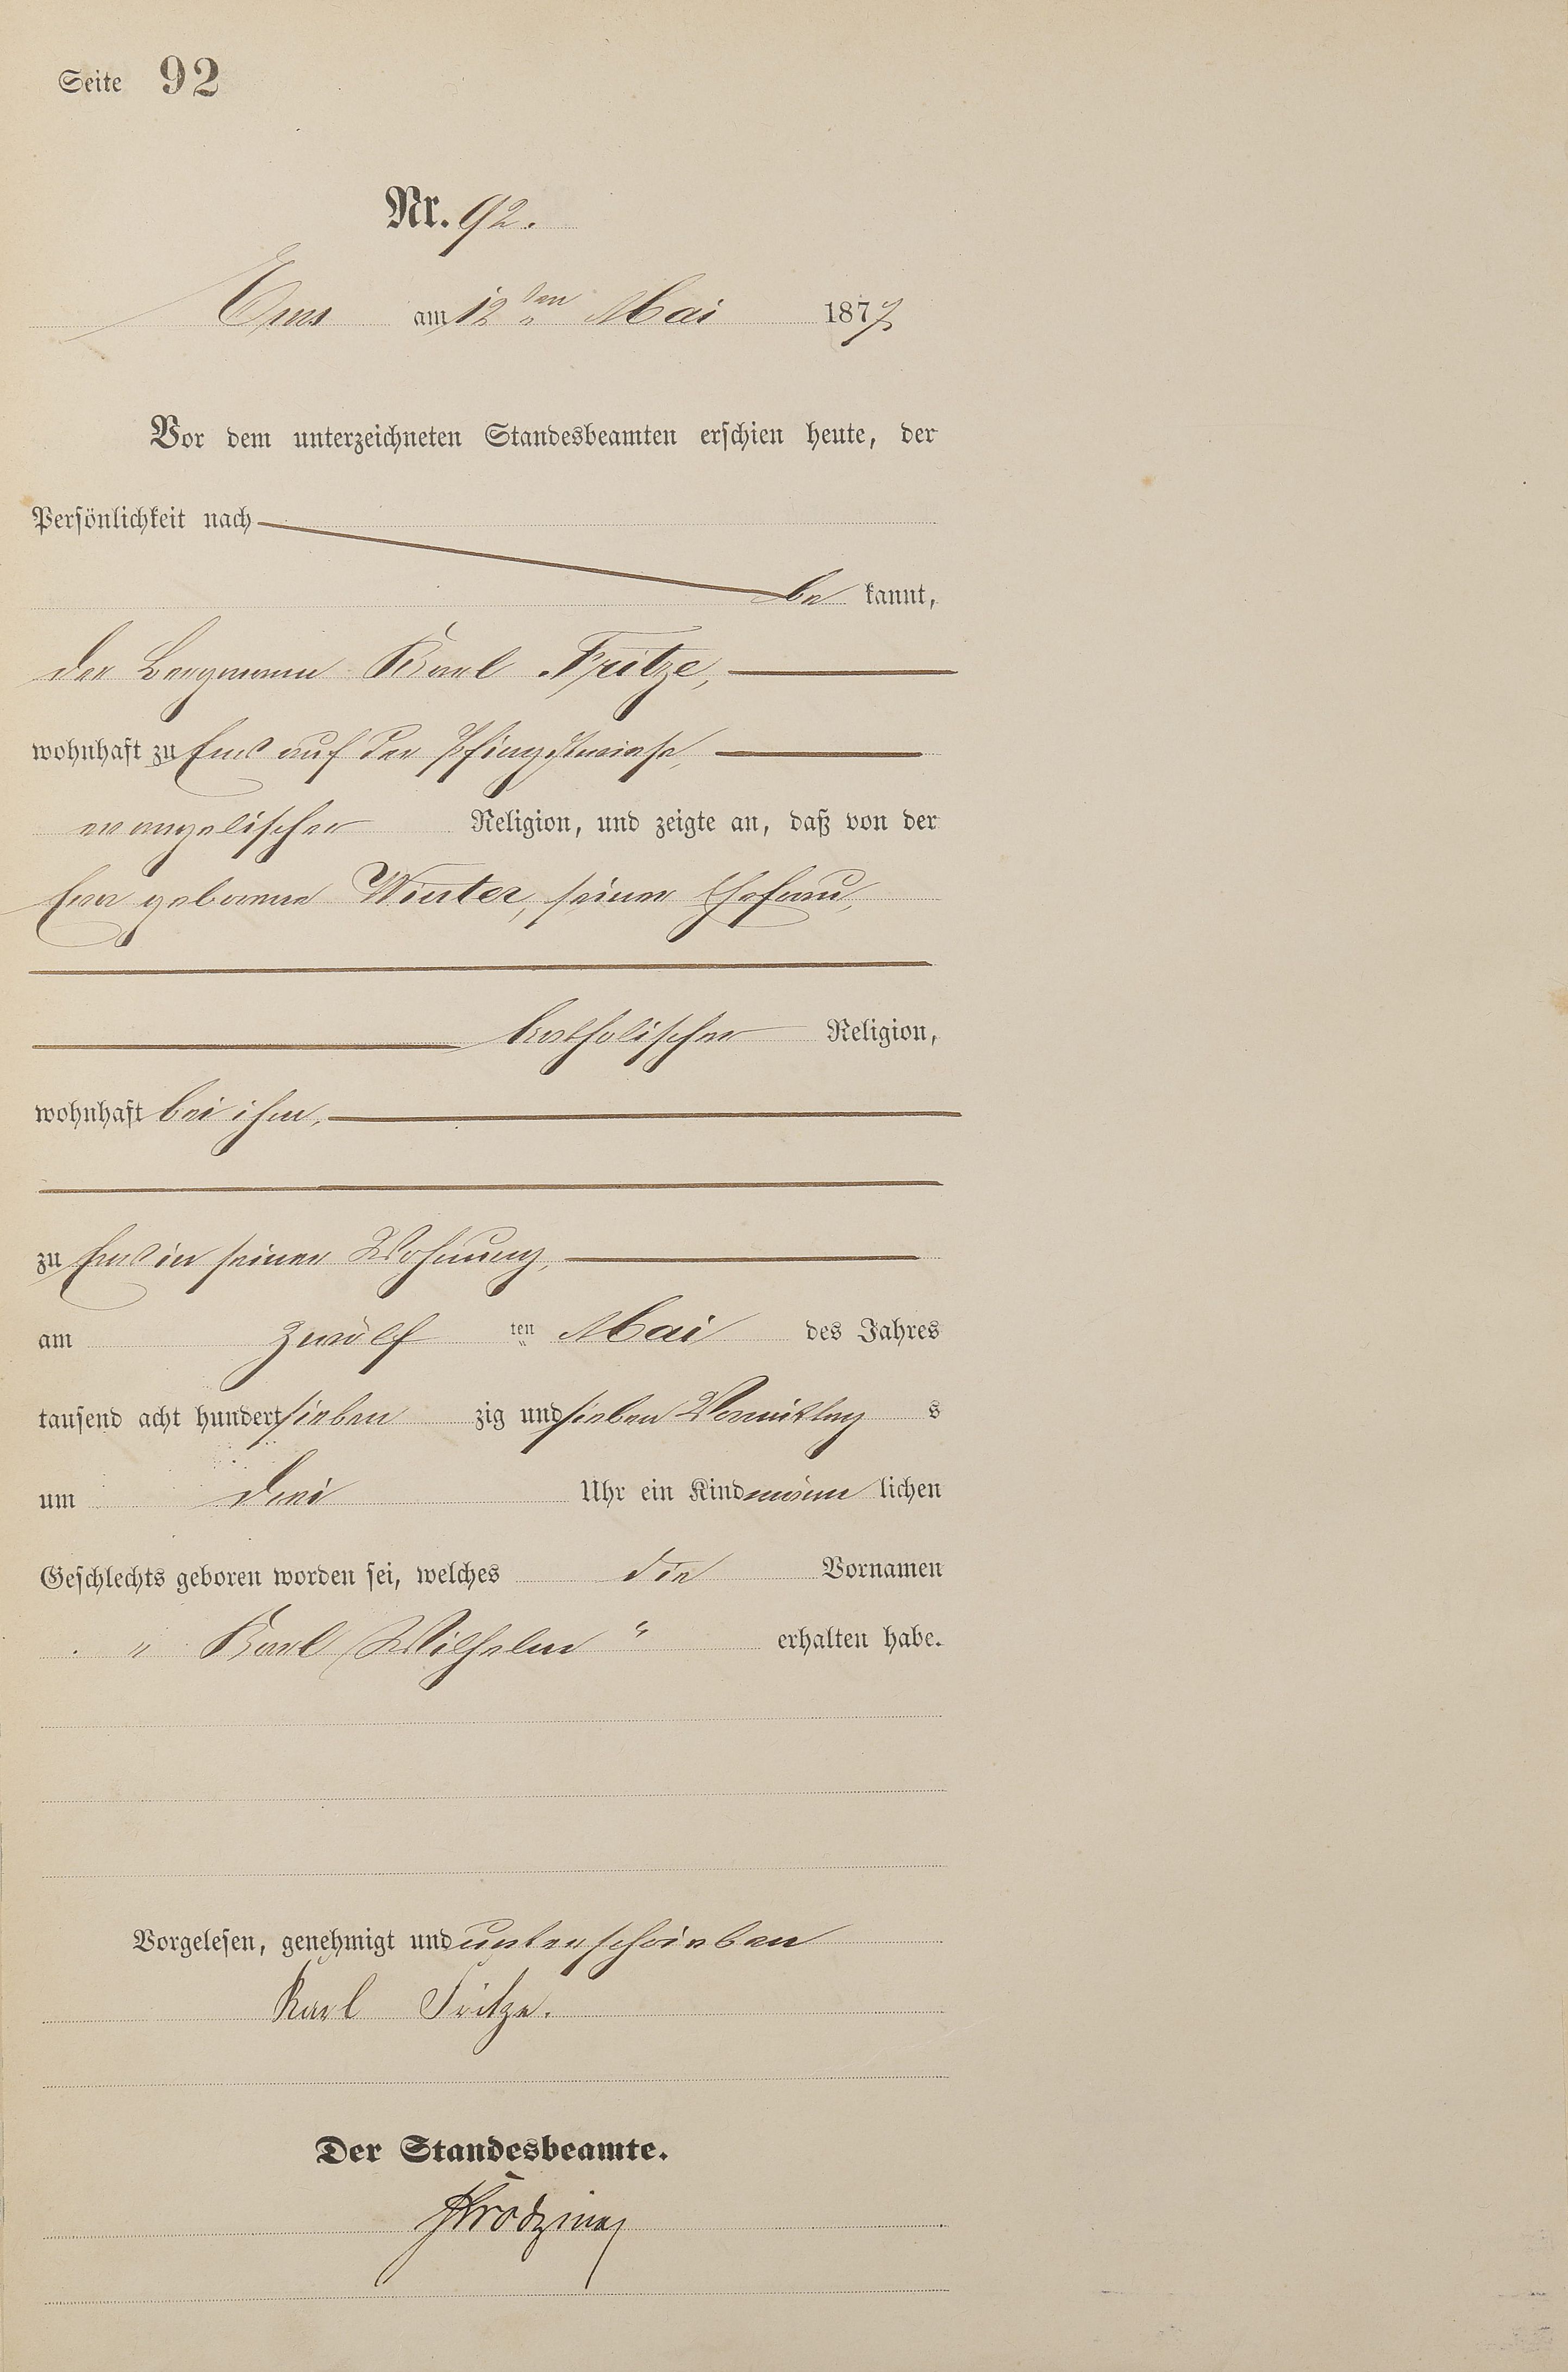 Seite 92
Nr. 92.
Ems am 12ten Mai 1877
Vor dem unterzeichneten Standesbeamten erschien heute, der
Persönlichkeit nach
be kannt,
der Bergmann Karl Fritze,
wohnhaft zu Ems auf der Pfingstwiese,
evangelischer Religion, und zeigte an, daß von der
Eva geborene Winter, seiner Ehefrau,
katholischer Religion,
wohnhaft bei ihm,
zu Ems in seiner Wohnung,
am zwölf ten Mai des Jahres
tausend acht hundert sieben zig und sieben Vormittag s
um drei Uhr ein Kind männ lichen
Geschlechts geboren worden sei, welches die Vornamen
" Karl Wilhelm " erhalten habe.
Vorgelesen, genehmigt und unterschrieben
Karl Fritze.
Der Standesbeamte.